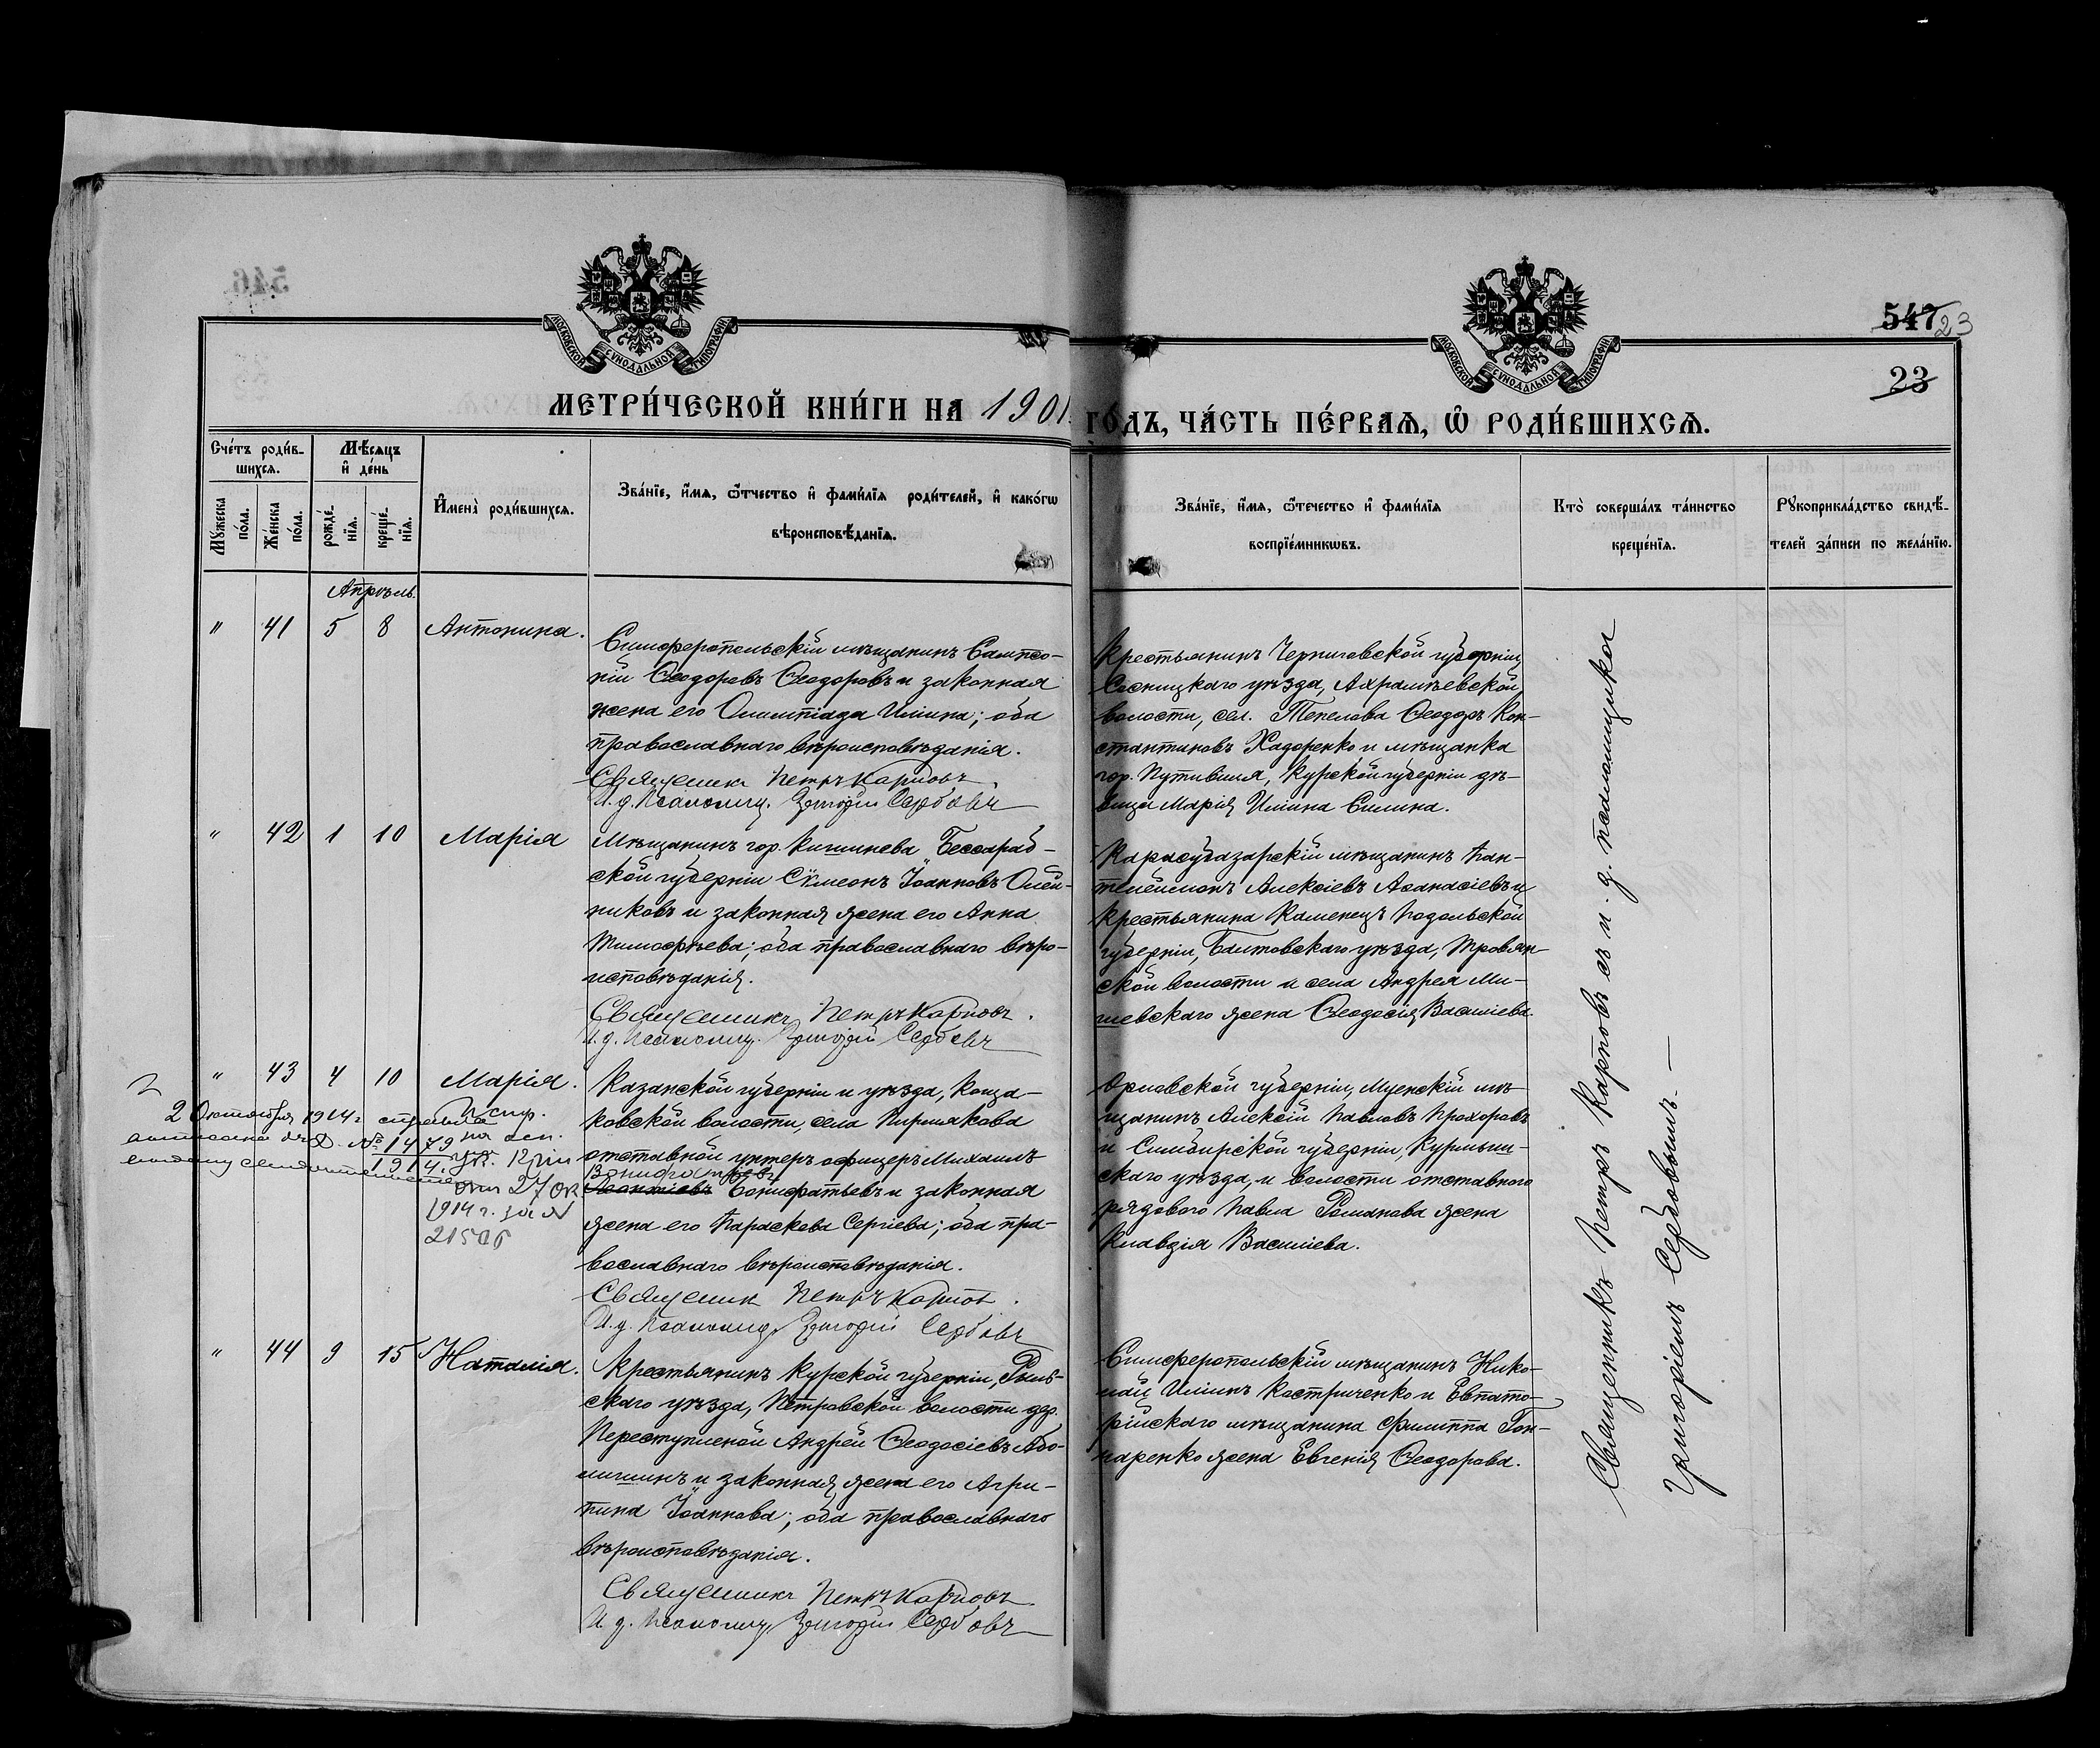 547 23
23
МОСКОВСКОЙ СУНОДАЛЬНОЙ ТИПОГРАФІИ
МОСКОВСКОЙ СУНОДАЛЬНОЙ ТИПОГРАФІИ
МЕТРИ́ЧЕСКОЙ КНИ́ГИ НА 1901 ГО́ДЪ, ЧА́СТЬ ПЕ́РВАѦ, Ѿ РОДИ́ВШИХСѦ.
Счетъ роди́в-
шихсѧ.
Мꙋжеска
по́ла.
Же́нска
по́ла.
Мѣ́сѧцъ
и де́нь
рожде́-
нїѧ.
креще́-
нїѧ.
Имена̀ роди́вшихсѧ.
Зва́нїе, и́мѧ, ѻ́тчество и фами́лїѧ роди́телей, и како́гѡ
вѣроисповѣ́данїѧ.
Зва́нїе, и́мѧ, ѻ́течество и фами́лїѧ
воспрїе́мникѡвъ.
Кто̀ соверша́лъ та́инство
креще́нїѧ.
Рꙋкоприкла́дство свидѣ́-
телей за́писи по жела́нїю.
Апрѣль.
" 41 5 8 Антонина.
Симферопольскій мѣщанинъ Сампсо-
ній Ѳеодоровъ Ѳеодоровъ и законная
жена его Олимпіада Ильина; оба
православнаго вѣроисповѣданія.
Священникъ Петръ Карповъ.
И. д. Псаломщ. Григорій Сербовъ
Крестьянинъ Черниговской губерніи,
Сосницкаго уѣзда, Ахрамѣевской
волости, сел. Тепелова Ѳеодоръ Кон-
стантиновъ Ходоренко и мѣщанка
гор. Путивля, Курской губерніи дѣ-
вица Марія Ильина Силина.
" 42 1 10 Марія
Мѣщанинъ гор. Кишинева Бессараб-
ской губерніи Сѵмеонъ Іоанновъ Олей-
никовъ и законная жена его Анна
Тимофѣева; оба православнаго вѣро-
исповѣданія.
Священникъ Петръ Карповъ.
И. д. Псаломщ. Григорій Сербовъ
Карасубазарскій мѣщанинъ Пан-
телеимонъ Алексіевъ Аѳанасіевъ и
крестьянина Каменецъ Подольской
губерніи, Балтовскаго уѣзда, Тровян-
ской волости и села Андрея Ми-
шевскаго жена Ѳеодосія Васильева.
" 43 4 10 Марія.
2 Октября 1914 г
№ 1479
1914 г.
27 ок
1914 г. за №
21506
Казанской губерніи и уѣзда, Коща-
ковской волости, села Кирмякова
отставной унтеръ офицеръ Михаилъ
Бонифатьевъ и законная
жена его Параскева Сергіева; оба пра-
вославнаго вѣроисповѣданія.
Священник Петръ Карпов.
И. д. Псаломщ. Григорій Сербовъ
Орловской губерніи, Мценскій мѣ-
щанинъ Алексій Павловъ Прохоровъ
и Симбирской губерніи, Курмыш-
скаго уѣзда, и волости отставного
рядового Павла Романова жена
Клавдія Васильева.
" 44 9 15 Наталія.
Крестьянинъ Курской губерніи, Рыль-
скаго уѣзда, Петровской волости дер.
Переступленой Андрей Ѳеодосіевъ Або-
лишинъ и законная жена его Агри-
пина Іоаннова; оба православнаго
вѣроисповѣданія.
Священникъ Петръ Карповъ
И. д. Псаломщ. Григорій Сербовъ
Симферопольскій мѣщанинъ Нико-
лай Ильинъ Костриченко и Евпато-
рійскаго мѣщанина Филиппа Гон-
чаренко жена Евгенія Ѳеодорова.
Священникъ Петръ Карповъ съ и. д. псаломщика
Григоріемъ Сербовымъ.